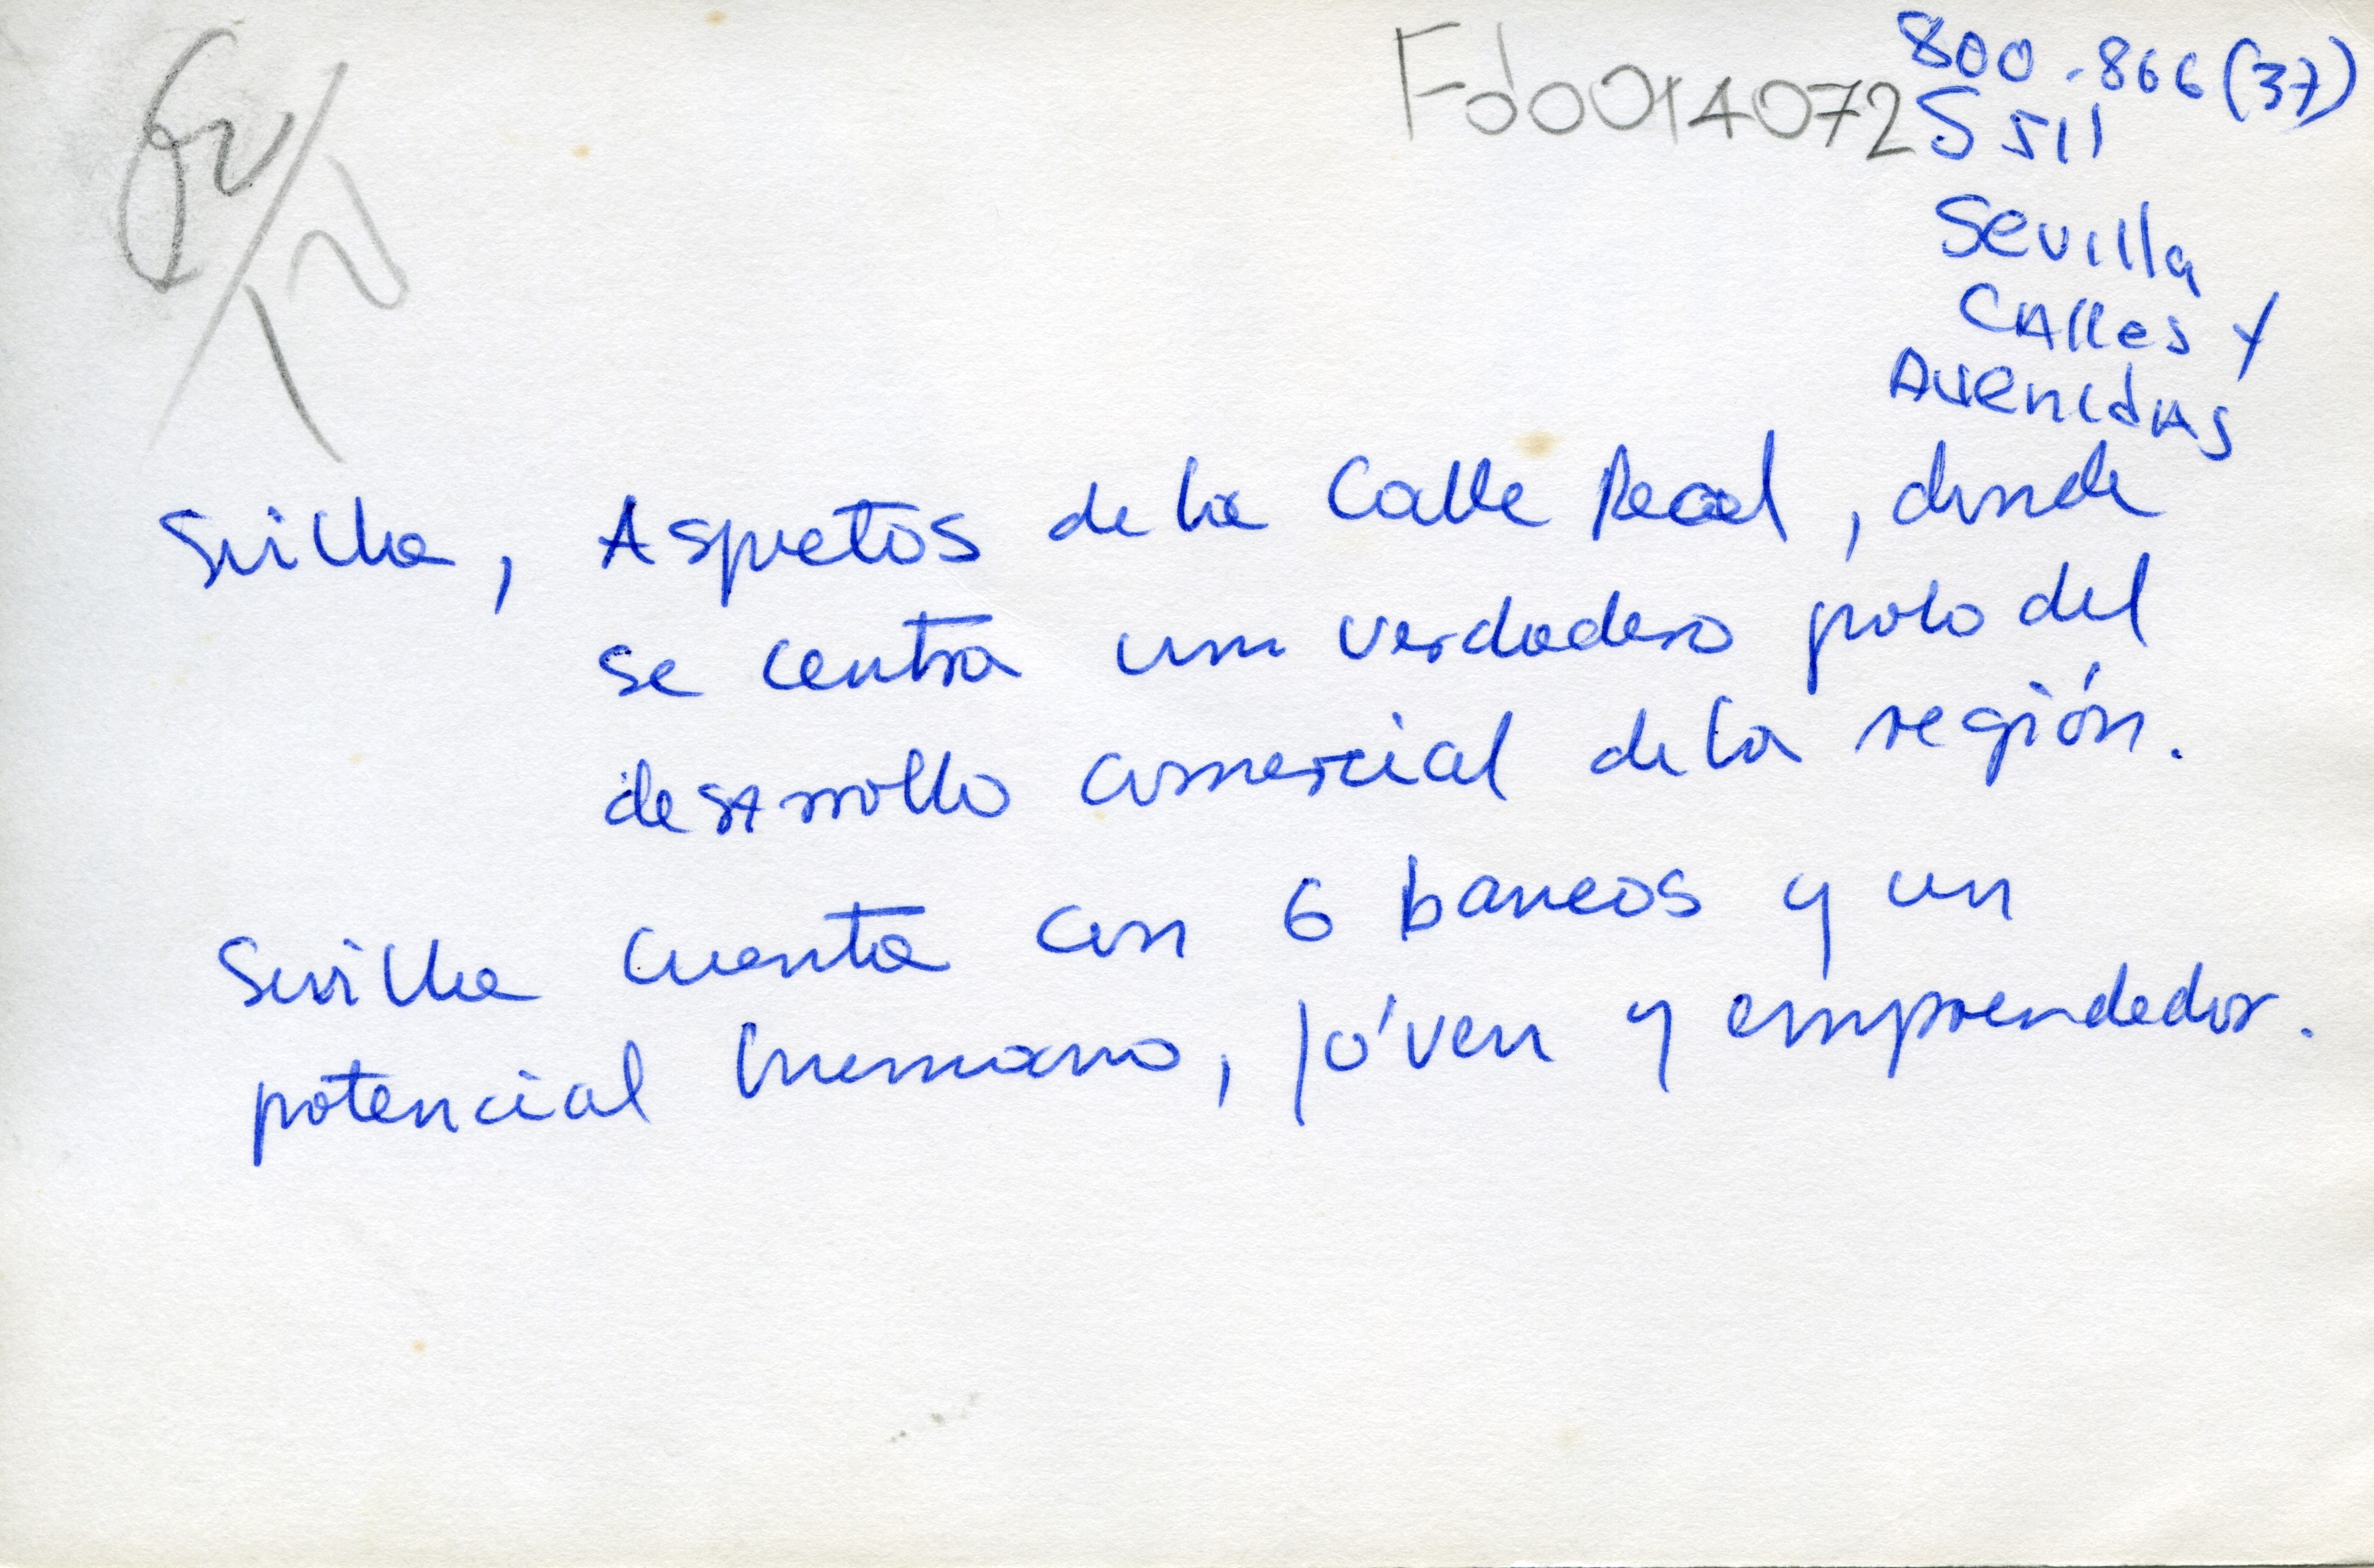 Fd0014072
800-866(37)
S 511
Sevilla
Calles y
Avenidas
Sevilla, Aspectos de la Calle Real, donde
se centra un verdadero polo del
desarrollo comercial de la región.
Sevilla cuenta con 6 bancos y un
potencial humano, jóven y emprendedor.